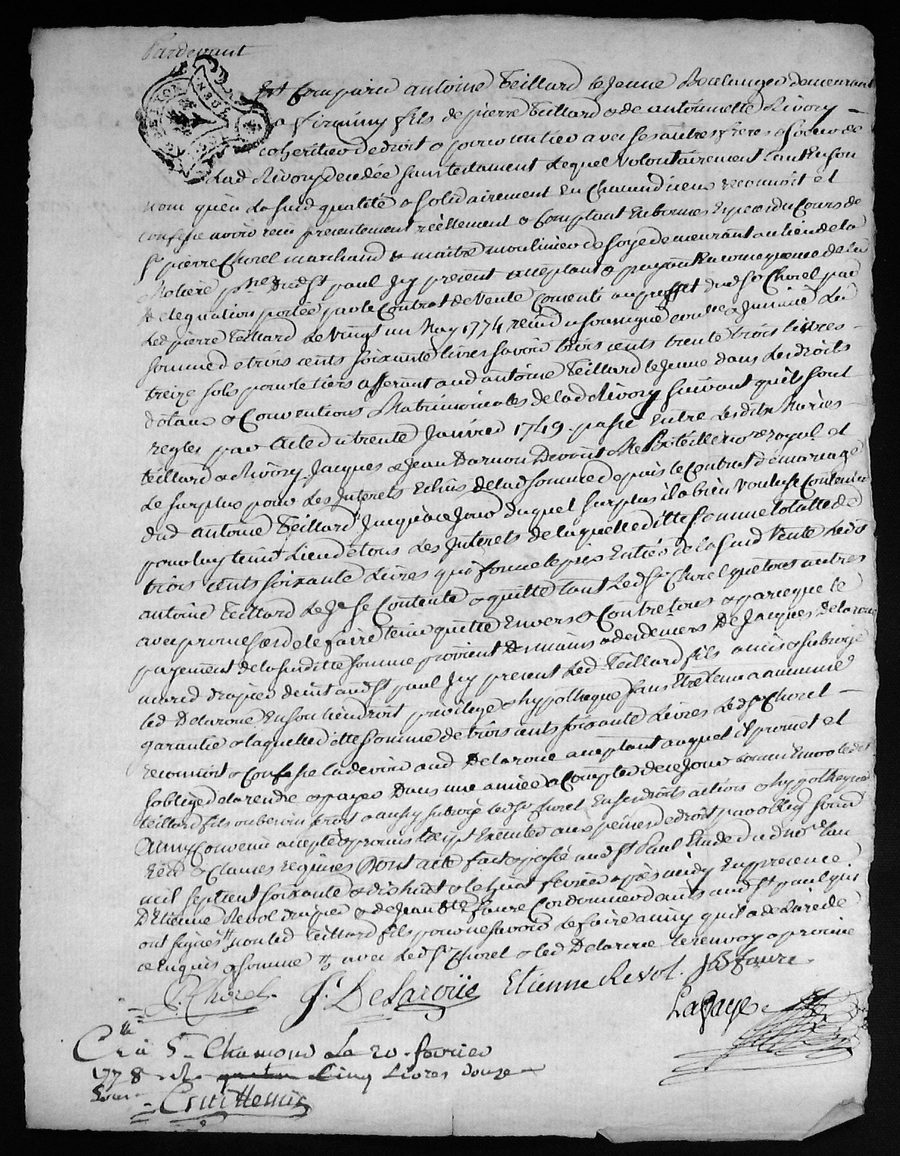 Pardevant
Est Comparu antoine Teillard le Jeune Boulanger demeurant
a firminy fils de pierre Teillard & de antoinette Rivory
coheritier de droit & par commun avec ses autres freres & soeurs de
Lad Rivory decedée sans testament Lequel volontairement tant en son
nom qu'en La susd qualité & solidairement En Chacun d'iceux reconnoit et
confesse avoir reçu presentement réellement & Comptant En bonnes Especes du Cours de
Sr pierre Chorel marchand & maitre moulinier de soye demeurant au lieu de la
Moliere psse dud St paul Jcy présent acceptant & payant En consequence de la
délégation portée par le Contrat de Vente Consenti au proffit dud Sr Chorel par
Led pierre Teillard Le vingt un May 1774 reçu du soussigné controllé & Jnsinué La
somme de trois cents soixante livres savoir trois cents trente trois livres
treize sols pour le tiers afferant aud antoine Teillard le Jeune dans Les droits
dotaux & Conventions Matrimoniales de lad Rivory suivant qu'ils sont
reglés par Acte du trente Janvier 1749 passé Entre Lesdits Maries
teillard & Rivory, Jacques & Jean Darnon Devant Me Bateille Nore royal et
Le surplus pour Les Interets Echus de lad somme depuis le Contrat de mariage
dud antoine Teillard Jusqu'a ce Jour duquel surplus il a bien voulu se Contenter
pour luy tenir Lieu de tous Les Interets de laquelle ditte somme totalle de
trois cents soixante Livres qui forme le prix Entier de la susd Vente Led
antoine Teillard Le Je se Contente & quitte tant Led Sr Chorel que tous autres
avec promesse de le faire tenir quitte Envers & Contre tous & parce que le
payement de la susditte somme provient Des mains & des deniers De Jacques Delaroue
mard drapier demt aud St paul Jcy present Led Teillard fils a mis & subrogé
led Delaroue En son lieu droit privilege & hypotheque sans Etre tenu a aucunne
garantie & laquelle ditte somme de trois cents soixante Livres Led Sr Chorel
reconnoit & Confesse La devoir aud Delaroue acceptant auquel il promet et
s'oblige de la rendre & payer Dans une année a Compter de ce Jour
teillard fils subrogé led Sr Chorel En ses droits actions & hypotheques
Ainsy Convenu accepté & promis Executer aux peines de droit par oblig soumi
renon & Clauses requises Dont acte fait & passé aud St Paul Etude du d nore L'an
mil sept cent soixante & dix huit & le huit fevrier apres midy En presence
D'Etienne Revol drapier & de Jean Bte Faure Cordonnier dants aud St paul qui
ont signés non led Teillard fils pour ne savoir Le faire ainsy qu'il a declaré de
ce Enquis & sommé avec Led Sr Chorel & led Delaroue Le renvoy approuvé
P. Chorel J. Delaroüe Etienne Revol JB faure
Lafaye
Clé à St Chamond Le 20 fevrier
1778 Reçu Cinq Livres douze
Sous